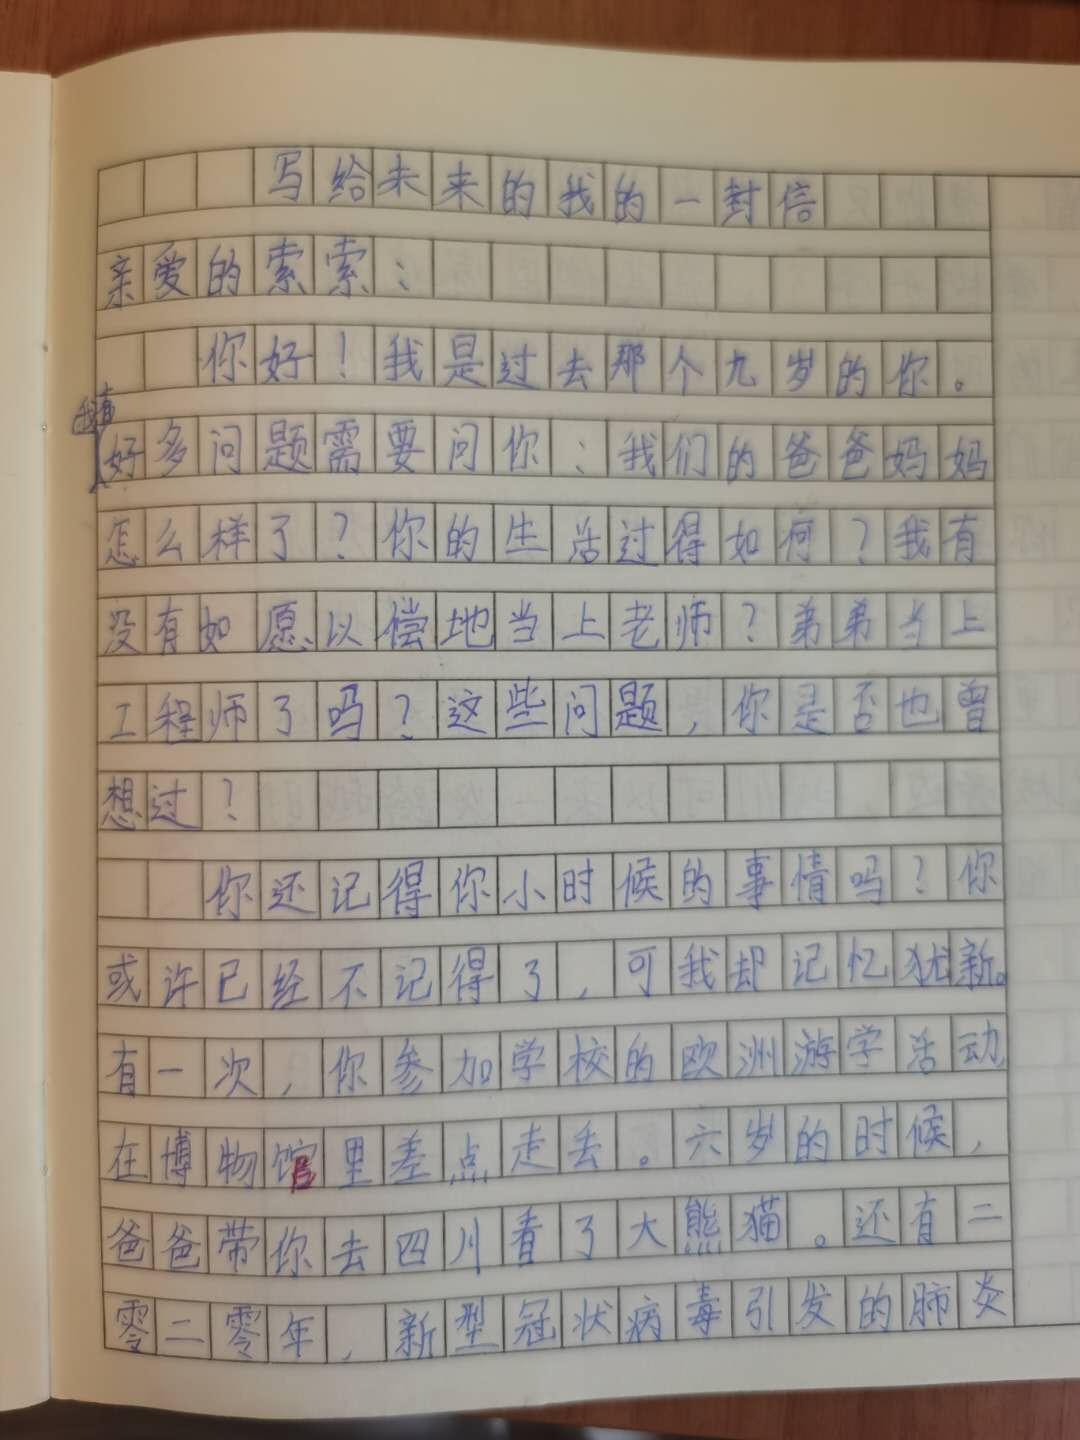 写给未来的我的一封信
亲爱的索索：
你好！我是过去那个九岁的你。
我有
好多问题需要问你：我们的爸爸妈妈
怎么样了？你的生活过得如何？我有
没有如愿以偿地当上老师？弟弟当上
工程师了吗？这些问题，你是否也曾
想过？
你还记得你小时候的事情吗？你
或许已经不记得了，可我却记忆犹新。
有一次，你参加学校的欧洲游学活动，
在博物馆里差点走丢。六岁的时候，
爸爸带你去四川看了大熊猫。还有二
零二零年，新型冠状病毒引发的肺炎